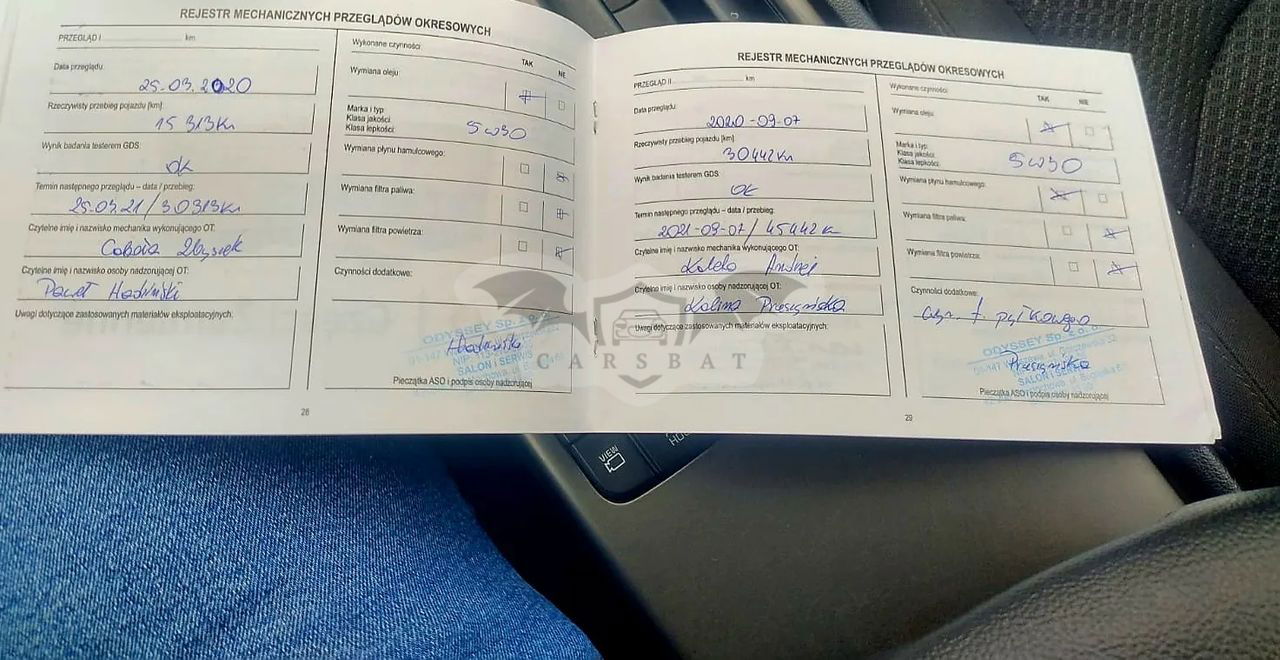 REJESTR MECHANICZNYCH PRZEGLĄDÓW OKRESOWYCH
PRZEGLĄD I km
Data przeglądu:
25.03.2020
Rzeczywisty przebieg pojazdu [km]:
15 313km
Wynik badania testerem GDS:
ok
Termin następnego przeglądu – data / przebieg:
25.03.21 / 30313km
Czytelne imię i nazwisko mechanika wykonującego OT:
Czytelne imię i nazwisko osoby nadzorującej OT:
Paweł
Uwagi dotyczące zastosowanych materiałów eksploatacyjnych:
Wykonane czynności: TAK NIE
Wymiana oleju:
Marka i typ:
Klasa jakości:
Klasa lepkości:
5W30
Wymiana płynu hamulcowego:
Wymiana filtra paliwa:
Wymiana filtra powietrza:
Czynności dodatkowe:
ODYSSEY Sp. z o.o.
SALON i SERWIS
Pieczątka ASO i podpis osoby nadzorującej
28
REJESTR MECHANICZNYCH PRZEGLĄDÓW OKRESOWYCH
PRZEGLĄD II km
Data przeglądu:
2020-09-07
Rzeczywisty przebieg pojazdu [km]:
30442km
Wynik badania testerem GDS:
ok
Termin następnego przeglądu – data / przebieg:
2021-09-07 / 45442 km
Czytelne imię i nazwisko mechanika wykonującego OT:
Andrzej
Czytelne imię i nazwisko osoby nadzorującej OT:
Uwagi dotyczące zastosowanych materiałów eksploatacyjnych:
Wykonane czynności: TAK NIE
Wymiana oleju:
Marka i typ:
Klasa jakości:
Klasa lepkości:
5W30
Wymiana płynu hamulcowego:
Wymiana filtra paliwa:
Wymiana filtra powietrza:
Czynności dodatkowe:
f. pyłkowego
ODYSSEY Sp. z o.o.
SALON i SERWIS
Pieczątka ASO i podpis osoby nadzorującej
29
CARSBAT
VIEW